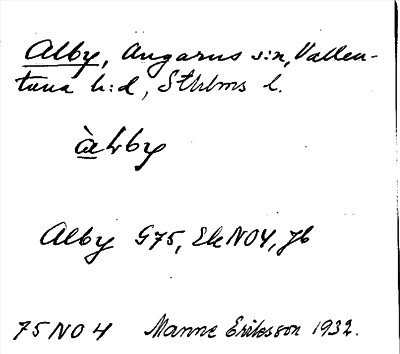 Alby, Angarns s:n, Vallen-
tuna h:d, Sthlms l.
àlby
Alby G75, Ek NO4, Jb
75 NO 4 Manne Eriksson 1932.